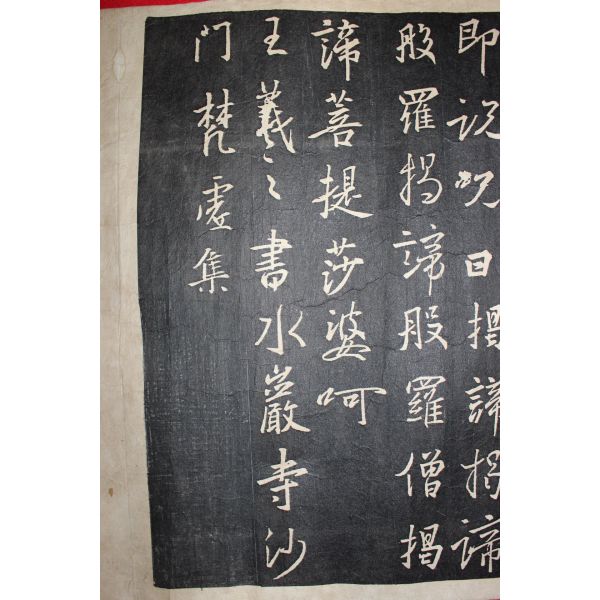 即説呪曰揭諦揭諦
般羅揭諦般羅僧揭
諦菩提莎婆呵
王羲之書水巖寺沙
門梵虛集